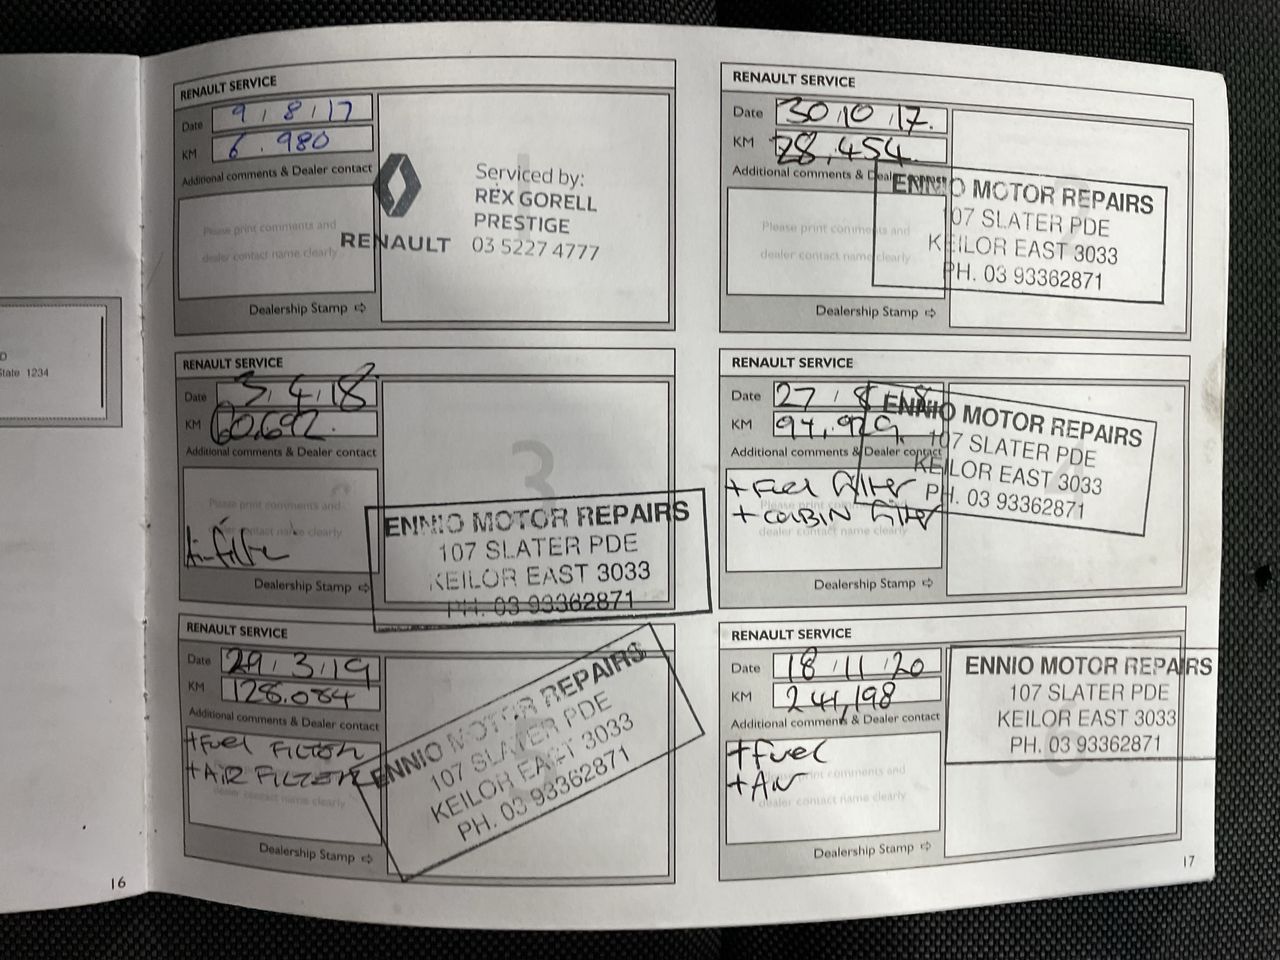 D
State 1234
16
RENAULT SERVICE
Date 9 / 8 / 17
KM 6.980
Additional comments & Dealer contact
Please print comments and
dealer contact name clearly
Dealership Stamp ⇨
1
RENAULT
Serviced by:
REX GORELL
PRESTIGE
03 5227 4777
RENAULT SERVICE
Date 30/10/17.
KM 28,454
Additional comments & Dealer contact
Please print comments and
dealer contact name clearly
Dealership Stamp ⇨
2
ENNIO MOTOR REPAIRS
107 SLATER PDE
KEILOR EAST 3033
PH. 03 93362871
RENAULT SERVICE
Date 3/4/18
KM 60,692.
Additional comments & Dealer contact
Please print comments and
dealer contact name clearly
Air Filter
Dealership Stamp ⇨
3
ENNIO MOTOR REPAIRS
107 SLATER PDE
KEILOR EAST 3033
PH. 03 93362871
RENAULT SERVICE
Date 27 / 8 / 18
KM 94,929.
Additional comments & Dealer contact
+ Fuel Filter
+ CABIN Filter
Please print comments and
dealer contact name clearly
Dealership Stamp ⇨
4
ENNIO MOTOR REPAIRS
107 SLATER PDE
KEILOR EAST 3033
PH. 03 93362871
RENAULT SERVICE
Date 29/3/19
KM 128.084
Additional comments & Dealer contact
+FUEL FILTER
+AIR FILTER
dealer contact name clearly
Dealership Stamp ⇨
5
ENNIO MOTOR REPAIRS
107 SLATER PDE
KEILOR EAST 3033
PH. 03 93362871
RENAULT SERVICE
Date 18/11/20
KM 241,198
Additional comments & Dealer contact
+fuel
+Air
Please print comments and
dealer contact name clearly
Dealership Stamp ⇨
6
ENNIO MOTOR REPAIRS
107 SLATER PDE
KEILOR EAST 3033
PH. 03 93362871
17